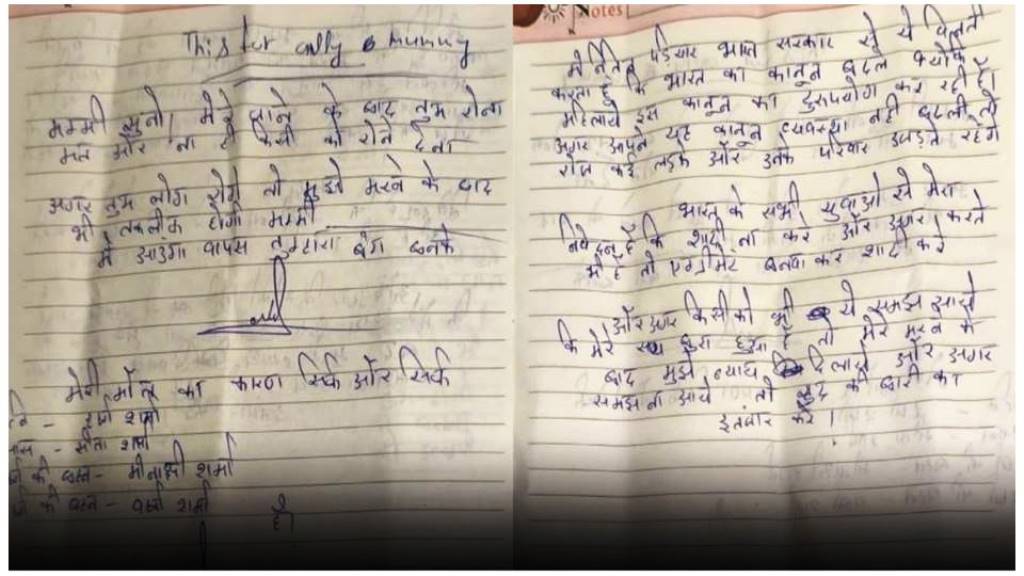 This for only mummy
मम्मी सुनो, मेरे जाने के बाद तुम रोना
मत और ना ही किसी को रोने देना
अगर तुम लोग रोगे तो मुझे मरने के बाद
भी तकलीफ होगी मम्मी
मैं आउंगा वापस तुम्हारा बनके
मेरी मौत का कारण सिर्फ और सिर्फ
शर्मा
सास - सीता शर्मा
की बहन - मीनाक्षी शर्मा
की बहन - वर्षा शर्मा
है।
Notes
में नितिन पड़ियार भारत सरकार से ये विनती
करता हूं कि भारत का कानून बदले क्योंकि
महिलायें इस कानून का दुरुपयोग कर रही है।
अगर आपने यह कानून व्यवस्था नही बदली तो
रोज कई लड़के और उनके परिवार उजड़ते रहेंगे
भारत के सभी युवाओं से मेरा
निवेदन है कि शादी ना करे और अगर करते
भी है तो एग्रीमेंट बनवा कर शादी करे
और अगर किसी को भी ये समझ आये
कि मेरे साथ बुरा हुआ है तो मेरे मरने के
बाद मुझे न्याय दिलाये और अगर
समझ ना आये तो खुद की बारी का
इंतजार करे।